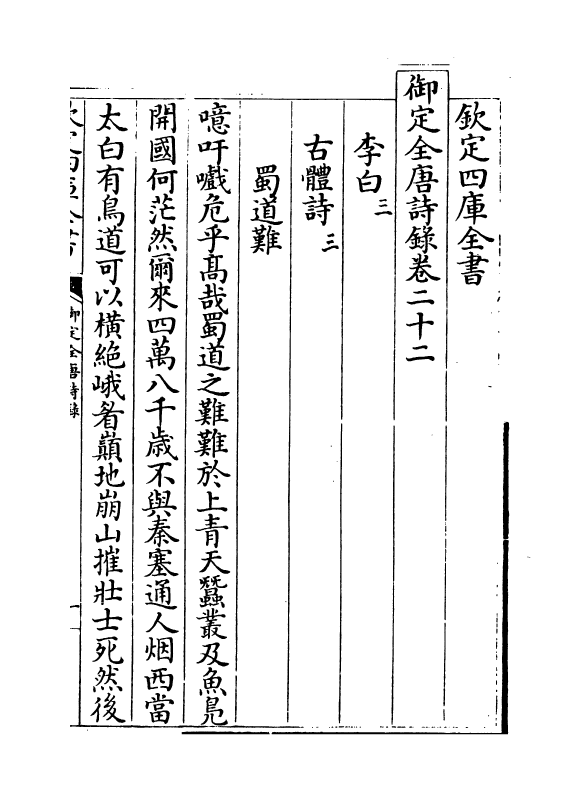 欽定四庫全書
御定全唐詩錄卷二十二
李白三
古體詩三
蜀道難
噫吁嚱危乎髙哉蜀道之難難於上青天蠶叢及魚鳬
開國何茫然爾來四萬八千歳不與秦塞通人烟西當
太白有鳥道可以橫絶峨眉巔地崩山摧壯士死然後
御定全唐詩錄
一